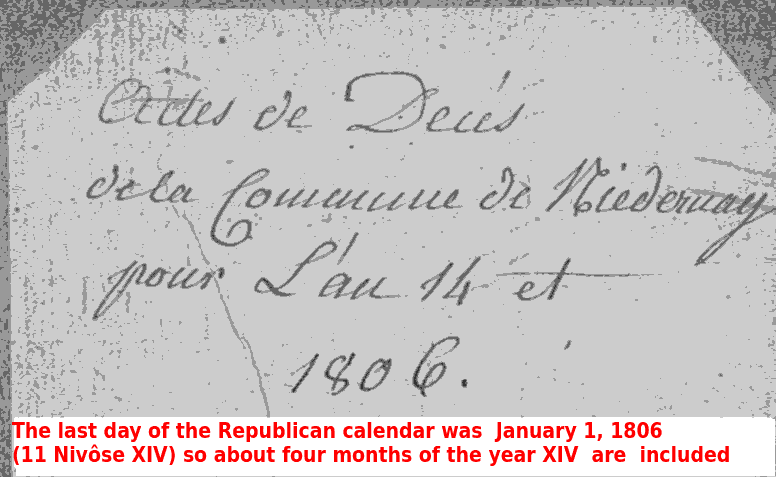 Actes de Decés
de la Commune de Niedernay
pour L'an 14 et
1806.
The last day of the Republican calendar was January 1, 1806
(11 Nivôse XIV) so about four months of the year XIV are included